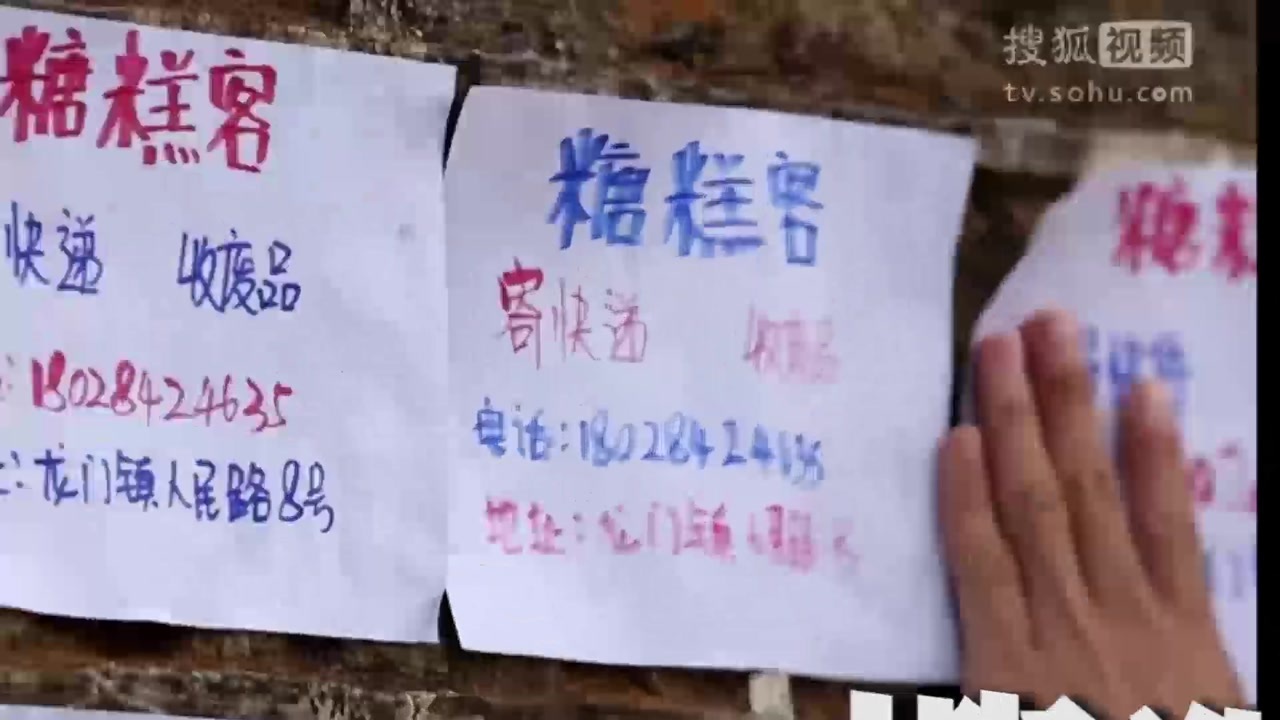 搜狐视频
tv.sohu.com
糖糕客
快递 收废品
18028424635
龙门镇人民路8号
糖糕客
寄快递 收废品
电话:18028424635
地址:龙门镇
糖